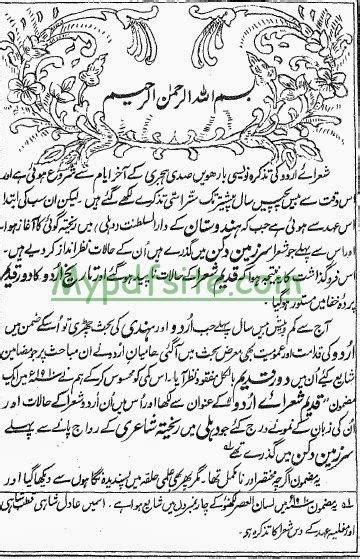 بسم اللہ الرحمٰن الرحیم
شعرائے اردو کی تذکرہ نویسی بارھویں صدی ہجری کے آخر ایام سے شروع ہوئی ہے اور
اس وقت سے بیس پچیس سال پیشتر تک ستر اسی تذکرے لکھے گئے ہیں۔ لیکن ان سب کی ابتدا
اس عہد سے ہوئی ہے جب کہ ہندوستان کے دارالسلطنت دہلی، میں ریختہ گوئی کا آغاز ہوا۔
اور اس سے پہلے جو شعرا سرزمین دکن میں گذرے ہیں اُن کے حالات نظر انداز کر دیے ہیں۔
اس فروگذاشت کا نتیجہ یہ ہوا کہ قدیم شعراء کے حالات چھپ گئے اور تاریخ اُردو کا دور قدیم
Mypdfsite.com
پردۂ خفا میں مستور ہو گیا۔
آج سے کم و بیش دس سال پہلے جب اُردو اور ہندی کی بحث چھڑی تو اُسکے ضمن میں
اُردو کی قدامت اور عمومیت بھی معرض بحث میں آگئی حامیان اُردو نے ان مباحث پر جو مضامین
شایع کیے اُن میں دور قدیم بالکل مفقود نظر آیا۔ اس کمی کو محسوس کر کے ہم نے میں ایک
مضمون "قدیم شعرائے اُردو" کے عنوان سے لکھا اور اُس میں اُن اُردو شعرا کے حالات اور
اُن کی زبان کے نمونے درج کئے جو دہلی میں ریختہ شاعری کے رواج پانے سے پہلے
سرزمین دکن میں گذرے تھے
یہ مضمون اگرچہ مختصر اور نامکمل تھا۔ مگر پھر بھی علمی حلقہ میں پسندیدہ نگاہوں سے دیکھا گیا اور
یہ مضمون لسان العصر لکھنؤ کے چار نمبروں میں شایع ہوا ہے۔ اسمیں عادل شاہی قطب شاہی
اور مغلیہ عہد کے دس شعرا کا تذکرہ ہو۔